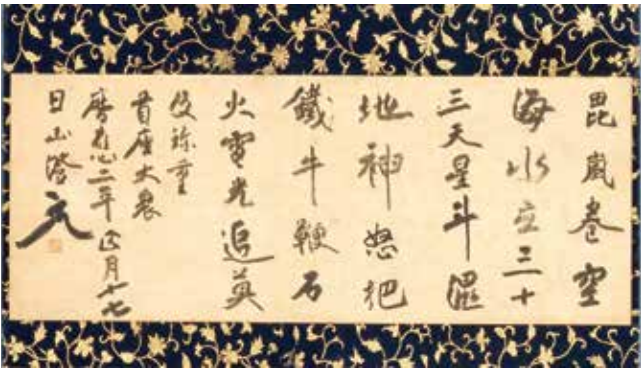 毘嵐卷空
海水立三十
三天星斗濕
地神怒把
鐵牛鞭石
火電光追莫
及珍重
首座大衆
暦応二年正月十七
日山澄